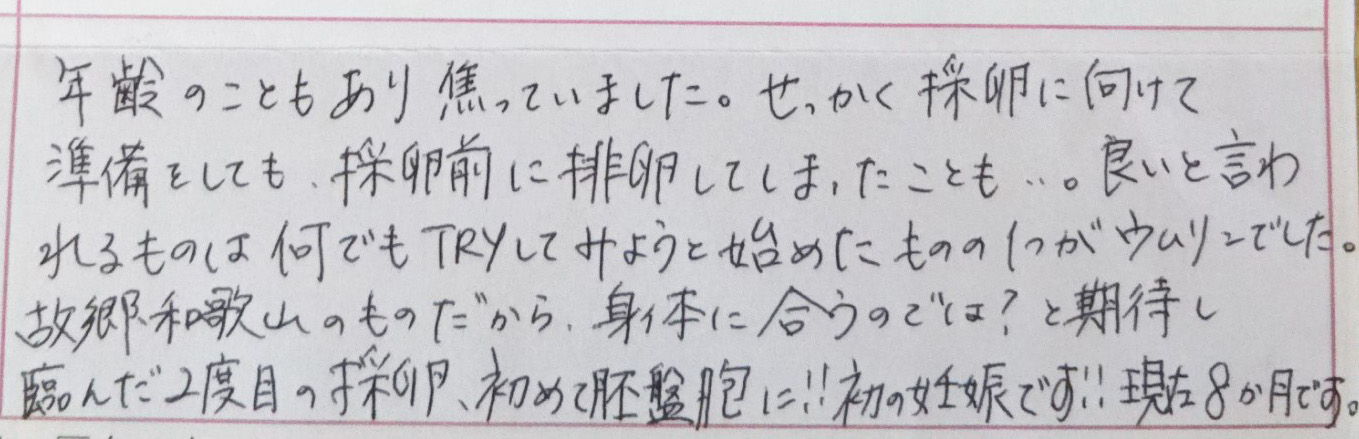 年齢のこともあり焦っていました。せっかく採卵に向けて
準備をしても、採卵前に排卵してしまったことも…。良いと言わ
れるものは何でもTRYしてみようと始めたものの1つがウムリンでした。
故郷、和歌山のものだから、身体に合うのでは?と期待し
臨んだ2度目の採卵、初めて胚盤胞に!!初の妊娠です!!現在8か月です。